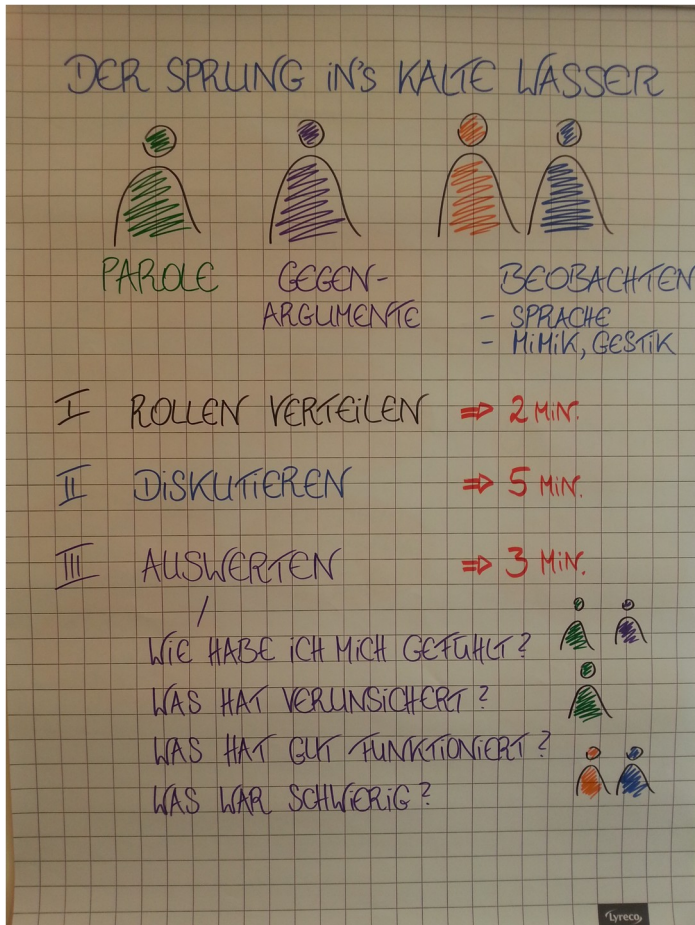 DER SPRUNG IN'S KALTE WASSER
PAROLE
GEGEN-
ARGUMENTE
BEOBACHTEN
- SPRACHE
- MIMIK, GESTIK
I ROLLEN VERTEILEN ⇒ 2 MIN.
II DISKUTIEREN ⇒ 5 MIN.
III AUSWERTEN ⇒ 3 MIN.
WIE HABE ICH MICH GEFÜHLT?
WAS HAT VERUNSICHERT?
WAS HAT GUT FUNKTIONIERT?
WAS WAR SCHWIERIG?
Lyreco